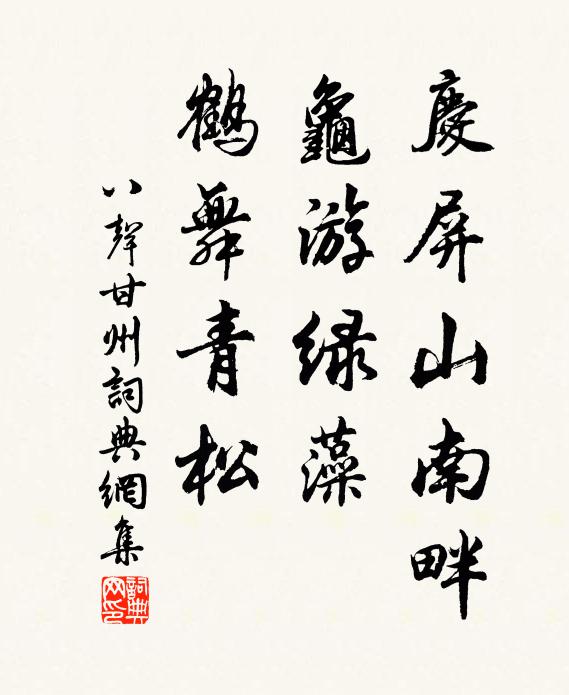 慶屏山南畔
龜游緑藻
鶴舞青松
八聲甘州詞典網集
詞典網印